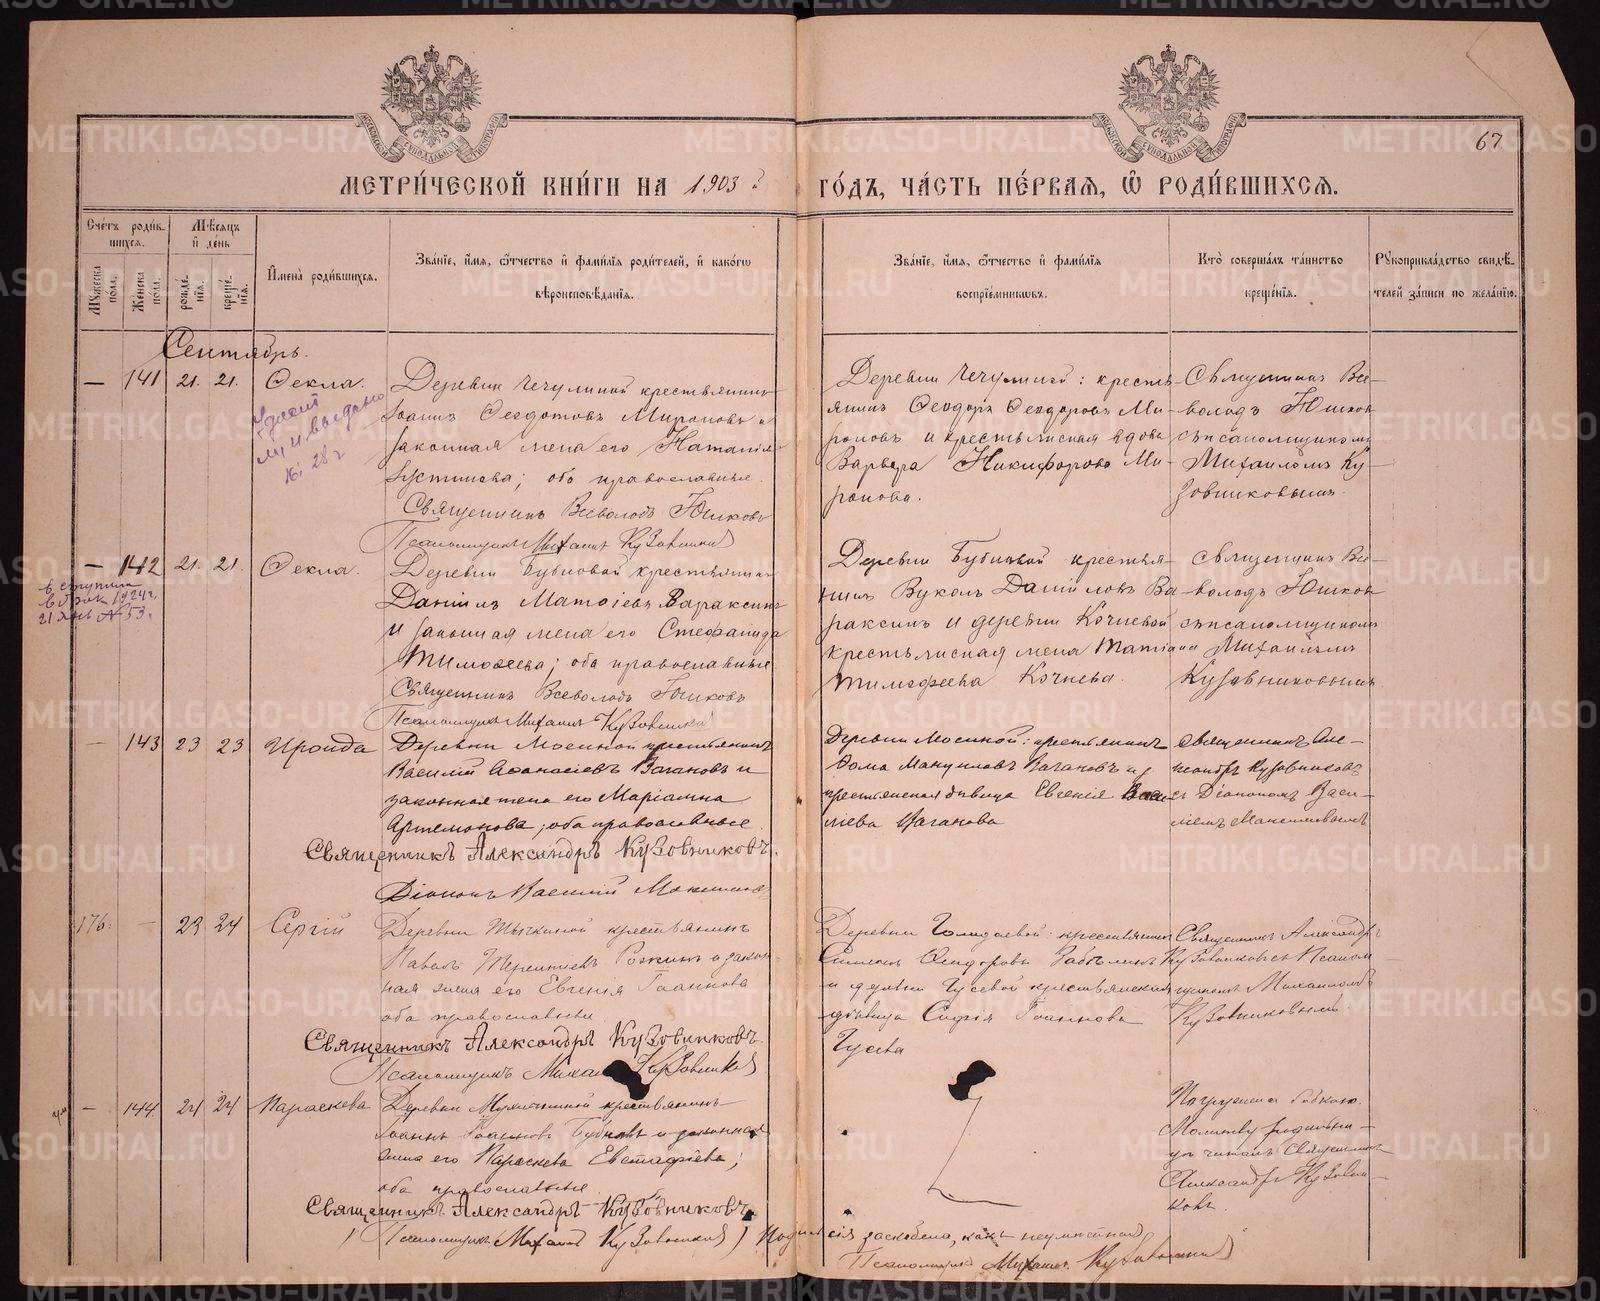 67
МЕТРИ́ЧЕСКОЙ КНИ́ГИ НА 1903 ГО́ДЪ, ЧА́СТЬ ПЕ́РВАѦ, Ѽ РОДИ́ВШИХСѦ.
Счетъ родив-
шихсѧ.
Мѣсѧцъ
и день
Мужеска
пола.
Женска
пола.
рожде-
нїѧ.
креще-
нїѧ.
Имена родившихсѧ.
Званїе, имѧ, ѿчество и фамилїѧ родителей, и какогѡ
вѣроисповѣданїѧ.
Званїе, имѧ, ѿчество и фамилїѧ
воспрїемникѡвъ.
Кто совершалъ таинство
крещенїѧ.
Рукоприкладство свидѣ-
телей записи по желанїю.
Сентябрь.
— 141 21. 21. Ѳекла.
Деревни Чечулиной крестьянинъ
Іоаннъ Ѳеодотовъ Мироновъ и
законная жена его Наталія
Іустинова; оба православные.
Священникъ Всеволодъ Юшковъ
Псаломщикъ Михаилъ Кузовниковъ
Деревни Чечулиной: кресть-
янинъ Ѳеодоръ Ѳеодоровъ Ми-
роновъ и крестьянская вдова
Варвара Никифорова Ми-
ронова.
Священникъ Все-
володъ Юшковъ
съ псаломщикомъ
Михаиломъ Ку-
зовниковымъ.
и выдано
28 г
— 142 21. 21. Ѳекла.
Деревни Бубновой крестьянинъ
Даніилъ Матѳіевъ Вараксинъ
и законная жена его Стефанида
Тимоѳеева; оба православные
Священникъ Всеволодъ Юшковъ
Псаломщикъ Михаилъ Кузовниковъ
Деревни Бубновой крестья-
нинъ Вуколъ Даніиловъ Ва-
раксинъ и деревни Кочневой
крестьянская жена Татіана
Тимофеева Кочнева.
Священникъ Все-
володъ Юшковъ
съ псаломщикомъ
Михаиломъ
Кузовниковымъ
вступил
в брак 1924 г.
21 № 53.
— 143 23 23 Ироида
Деревни Мосиной крестьянинъ
Василій Аѳанасіевъ Вагановъ и
законная жена его Маріамна
Артемонова; оба православные.
Священникъ Александръ Кузовниковъ.
Діаконъ Василій
Деревни Мосиной: крестьянинъ
Ѳома Мануиловъ Вагановъ и
крестьянская дѣвица Евгенія Васи-
лиева Ваганова
Священникъ Але-
ксандръ Кузовниковъ
съ Діакономъ Васи-
ліемъ
176. — 23 24 Сергій
Деревни Тычкиной крестьянинъ
Павелъ Терентіевъ и закон-
ная жена его Евгенія Іоаннова
оба православные.
Священникъ Александръ Кузовниковъ.
Псаломщикъ Михаилъ Кузовниковъ
Деревни крестьянинъ
и деревни Гусевой крестьянская
дѣвица Софія Іоаннова
Гусева
Священникъ Александръ
Кузовниковъ съ Псалом-
щикомъ Михаиломъ
Кузовниковымъ.
— 144. 24 24 Параскева
Деревни крестьянинъ
Іоаннъ Іоанновъ Бубновъ и законная
жена его Параскева Евстафіева;
оба православные
Священникъ Александръ Кузовниковъ.
Псаломщикъ Михаилъ Кузовниковъ
Погружена бабкою.
Молитву
читалъ Священникъ
Александръ Кузовни-
ковъ.
какъ неумѣстная
Псаломщикъ Михаилъ Кузовниковъ
METRIKI.GASO-URAL.RU